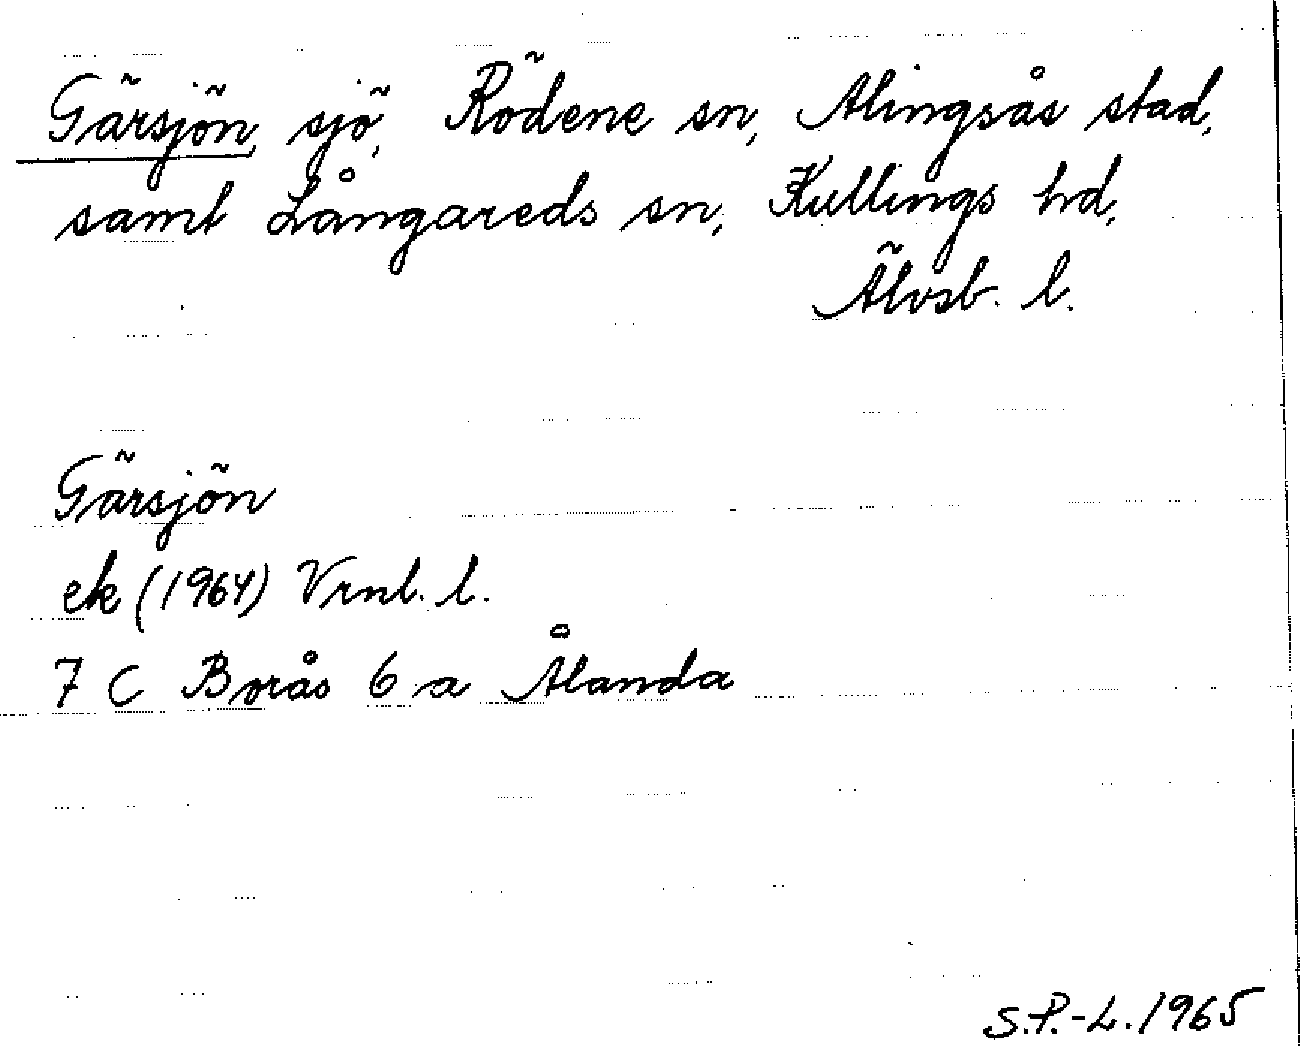 Gärsjön, sjö, Rödene sn, Alingsås stad,
samt Långareds sn, Kullings hd,
Älvsb. l.
Gärsjön
ek (1964) Vrnl. l.
7 C Borås 6 a Ålanda
S.P.-L. 1965